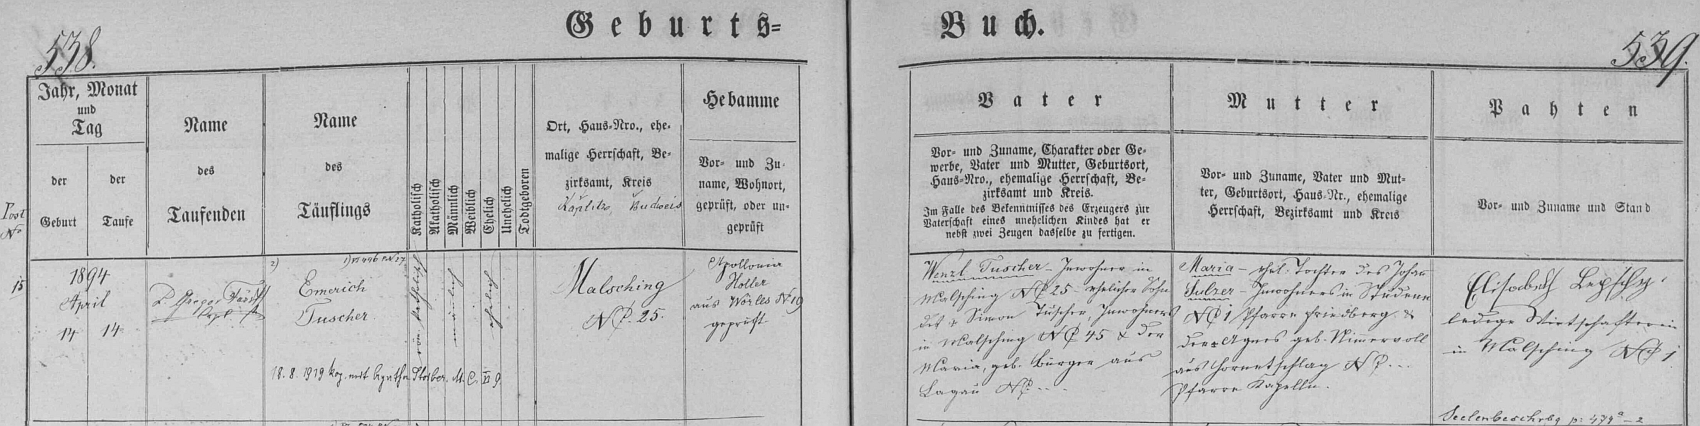 538.
Geburts=
Jahr, Monat
und
Tag
der
Geburt
der
Taufe
Name
des
Taufenden
Name
des
Täuflings
Katholisch
Akatholisch
Männlich
Weiblich
Ehelich
Unehelich
Todtgeboren
Ort, Haus=Nro., ehe=
malige Herrschaft, Be=
zirksamt, Kreis
Kaplitz, Budweis
Hebamme
Vor= und Zu=
name, Wohnort,
geprüft, oder un=
geprüft
Post
No
15
1894
April
14 14
P. Gregor
2)
Emerich
Tuscher
18. 8. 1919 kop. mit Agatha Stoiber. M. C. VI 9.
röm. katholisch
männlich
ehelich
Malsching
N.C. 25.
Apollonia
Holler
aus Wörles No 19
geprüft
Buch.
539.
Vater
Vor= und Zuname, Charakter oder Ge=
werbe, Vater und Mutter, Geburtsort,
Haus=Nro., ehemalige Herrschaft, Be=
zirksamt und Kreis.
Im Falle des Bekenntnisses des Erzeugers zur
Vaterschaft eines unehelichen Kindes hat er
nebst zwei Zeugen dasselbe zu fertigen.
Mutter
Vor= und Zuname, Vater und Mut=
ter, Geburtsort, Haus=Nr., ehemalige
Herrschaft, Bezirksamt und Kreis
Pahten
Vor= und Zuname und Stand
Wenzl Tuscher – Inwohner in
Malsching NC 25 ehelicher Sohn
des + Simon Tuscher, Inwohners
in Malsching NC 45 & der
Maria, geb. Bürger aus
Lagau NC...
Maria – ehel. Tochter des Johan
Sulzer – Inwohners in Studene
NC 1 Pfarre Friedberg &
der Agnes geb. Nimervoll
aus Hornetschlag NC...
Pfarre Kapelln.
Elisabeth Lepschy
ledige Wirtschafterin
in Malsching NC 1
Seelenbeschrbg p: 479